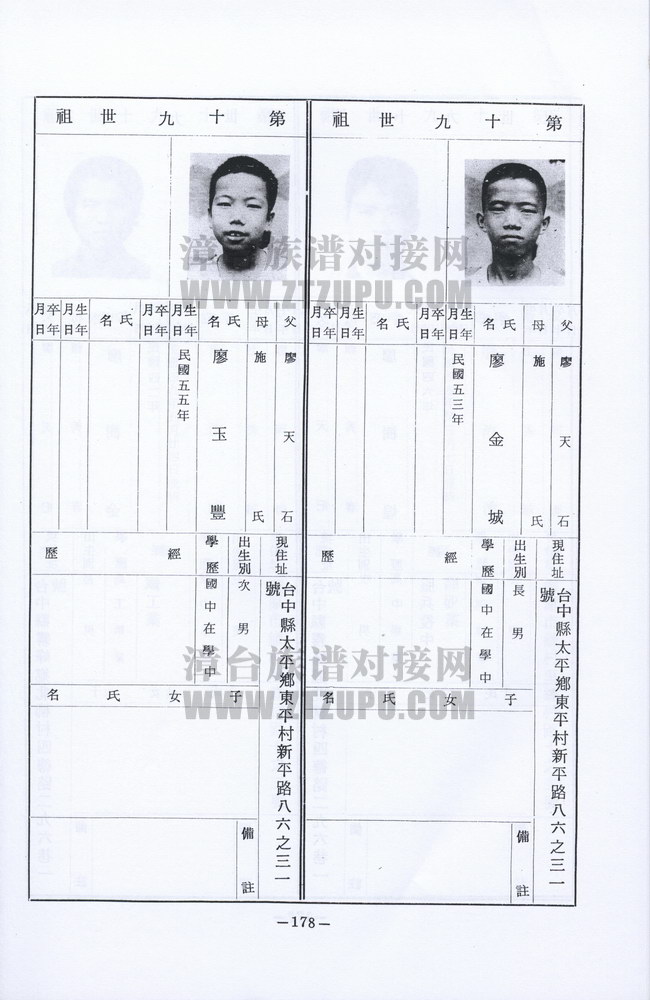 第十九世祖
父 廖天石
母 施氏
氏名 廖金城
生年月日 民國五三年
卒年月日
氏名
生年月日
卒年月日
現住址 台中縣太平鄉東平村新平路八六之三一號
出生別 長男
學歷 國中在學中
經歷
子女氏名
備註
第十九世祖
父 廖天石
母 施氏
氏名 廖玉豐
生年月日 民國五五年
卒年月日
氏名
生年月日
卒年月日
現住址 台中縣太平鄉東平村新平路八六之三一號
出生別 次男
學歷 國中在學中
經歷
子女氏名
備註
漳台族谱对接网
WWW.ZTZUPU.COM
漳台族谱对接网
WWW.ZTZUPU.COM
—178—